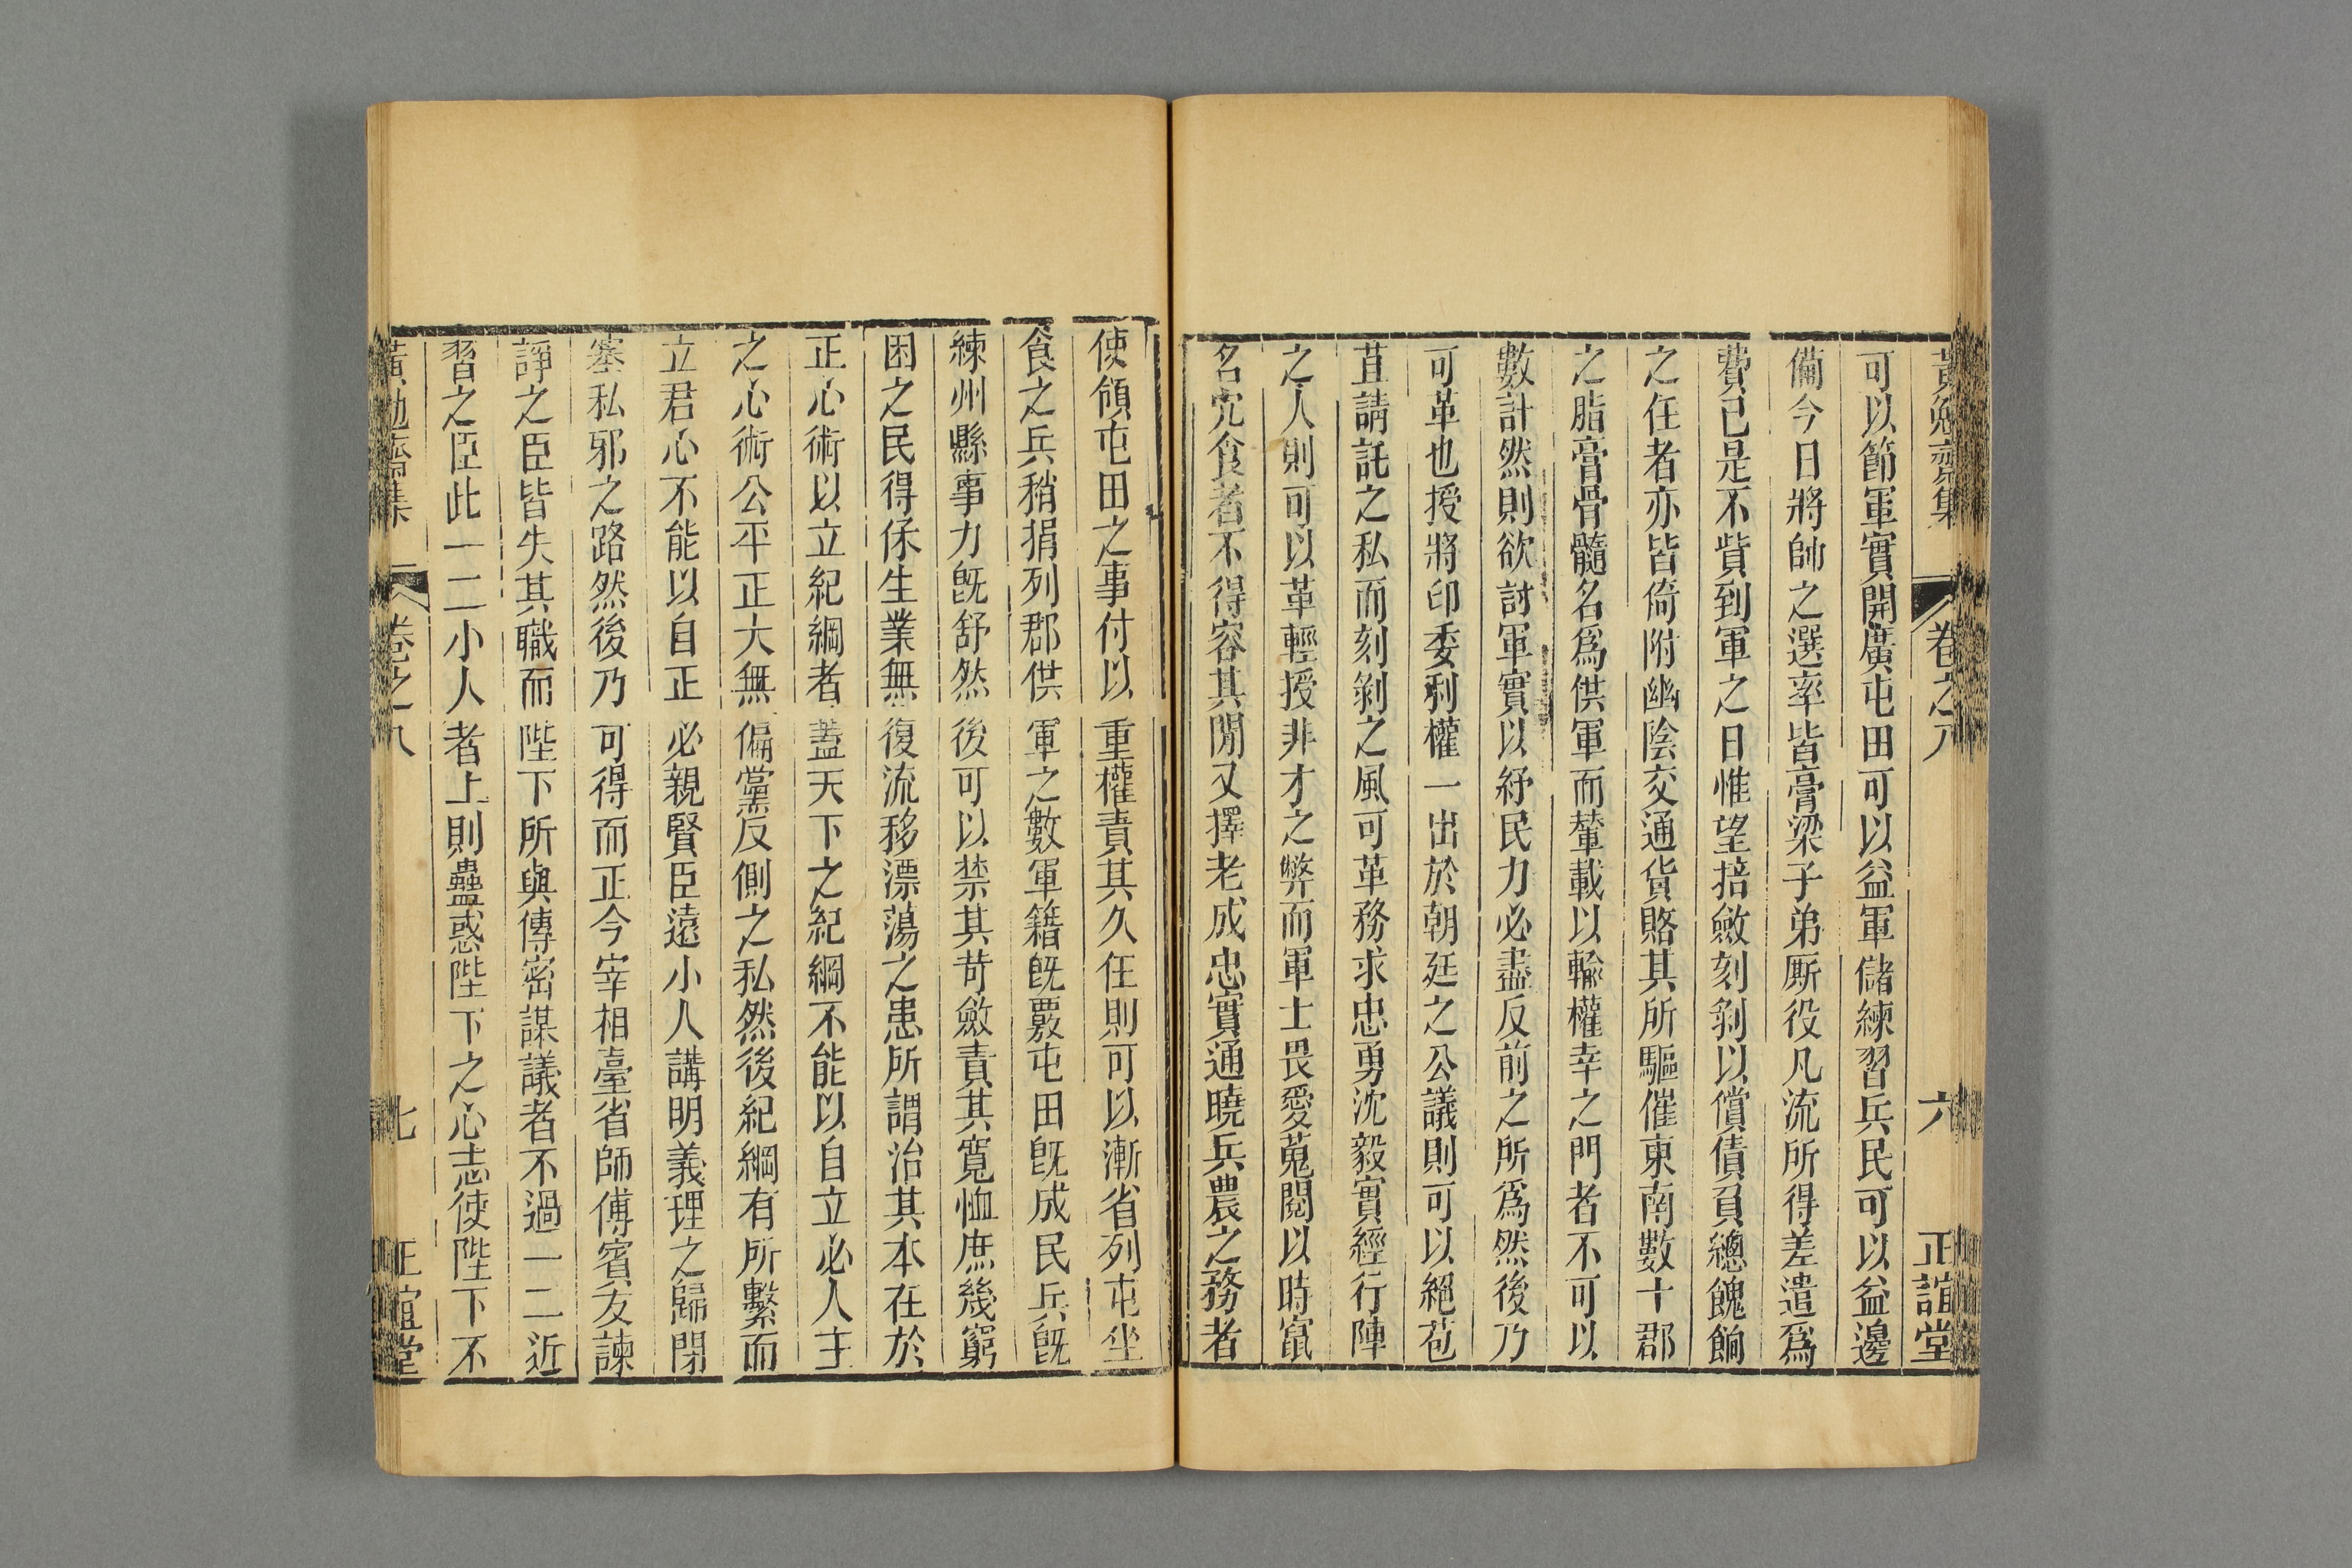 黃勉齋集 卷之八 六 正誼堂
可以節軍實開廣屯田可以益軍儲練習兵民可以益邊
備今日將帥之選率皆膏梁子弟厮役凡流所得差遣爲
費已是不貲到軍之日惟望掊斂刻剝以償債負總餽餉
之任者亦皆倚附幽陰交通貨賂其所驅催東南數十郡
之脂膏骨髓名爲供軍而輦載以輸權幸之門者不可以
數計然則欲討軍實以紓民力必盡反前之所爲然後乃
可革也授將印委利權一出於朝廷之公議則可以絕苞
苴請託之私而刻剝之風可革務求忠勇沈毅實經行陣
之人則可以革輕授非才之弊而軍士畏愛蒐閱以時竄
名宂食者不得容其閒又擇老成忠實通曉兵農之務者
使領屯田之事付以重權責其久任則可以漸省列屯坐
食之兵稍捐列郡供軍之數軍籍既覈屯田既成民兵既
練州縣事力既舒然後可以禁其苛斂責其寬恤庶幾窮
困之民得保生業無復流移漂蕩之患所謂治其本在於
正心術以立紀綱者蓋天下之紀綱不能以自立必人主
之心術公平正大無偏黨反側之私然後紀綱有所繫而
立君心不能以自正必親賢臣遠小人講明義理之歸閉
塞私邪之路然後乃可得而正今宰相臺省師傅賓友諫
諍之臣皆失其職而陛下所與傳密謀議者不過一二近
習之臣此一二小人者上則蠱惑陛下之心志使陛下不
黃勉齋集 卷之八 七 正誼堂